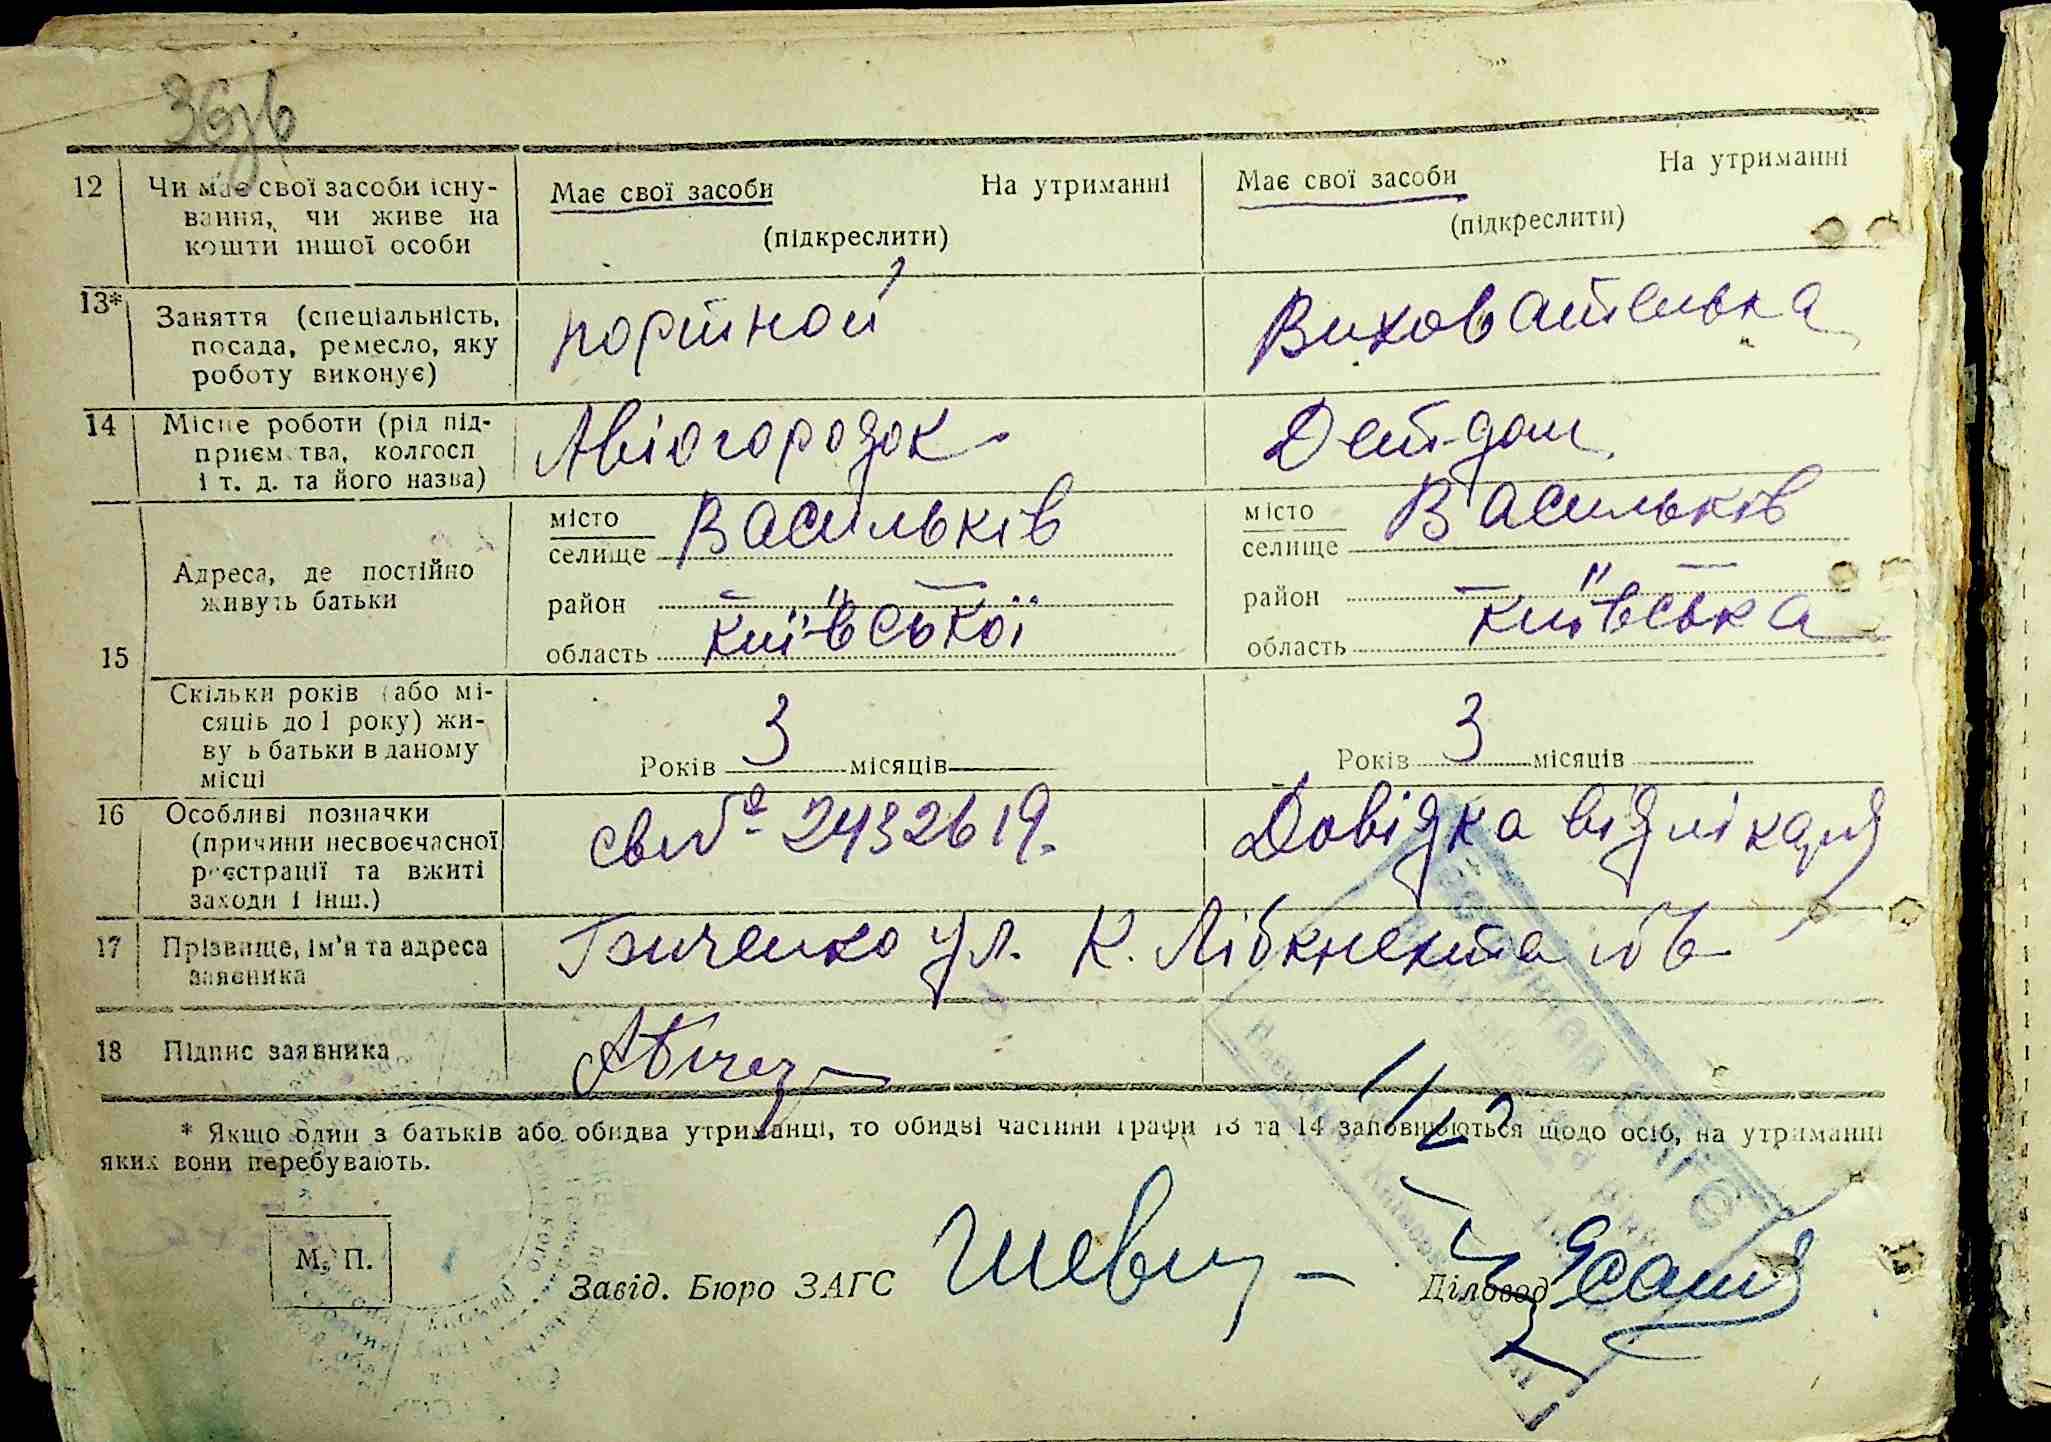 12 Чи має свої засоби існу-
вання, чи живе на
кошти іншої особи
Має свої засоби На утриманні
(підкреслити)
Має свої засоби На утриманні
(підкреслити)
13* Заняття (спеціальність,
посада, ремесло, яку
роботу виконує)
портной
Вихователька
14 Місце роботи (рід під-
приємства, колгосп
і т. д. та його назва)
Авіогородок
Дет-дом
15
Адреса, де постійно
живуть батьки
місто
селище Васильків
район — " —
область київської
місто
селище Васильків
район — " —
область київська
Скільки років (або мі-
сяців до 1 року) жи-
вуть батьки в даному
місці
Років 3 місяців
Років 3 місяців
16 Особливі позначки
(причини несвоєчасної
реєстрації та вжиті
заходи і інш.)
св № 2432619.
Довідка від лікаря
17 Прізвище, ім'я та адреса
заявника
ул. К. Лібкнехта
18 Підпис заявника
* Якщо один з батьків або обидва утриманці, то обидві частини графи 13 та 14 заповнюються щодо осіб, на утриманні
яких вони перебувають.
М. П.
Завід. Бюро ЗАГС
Діловод